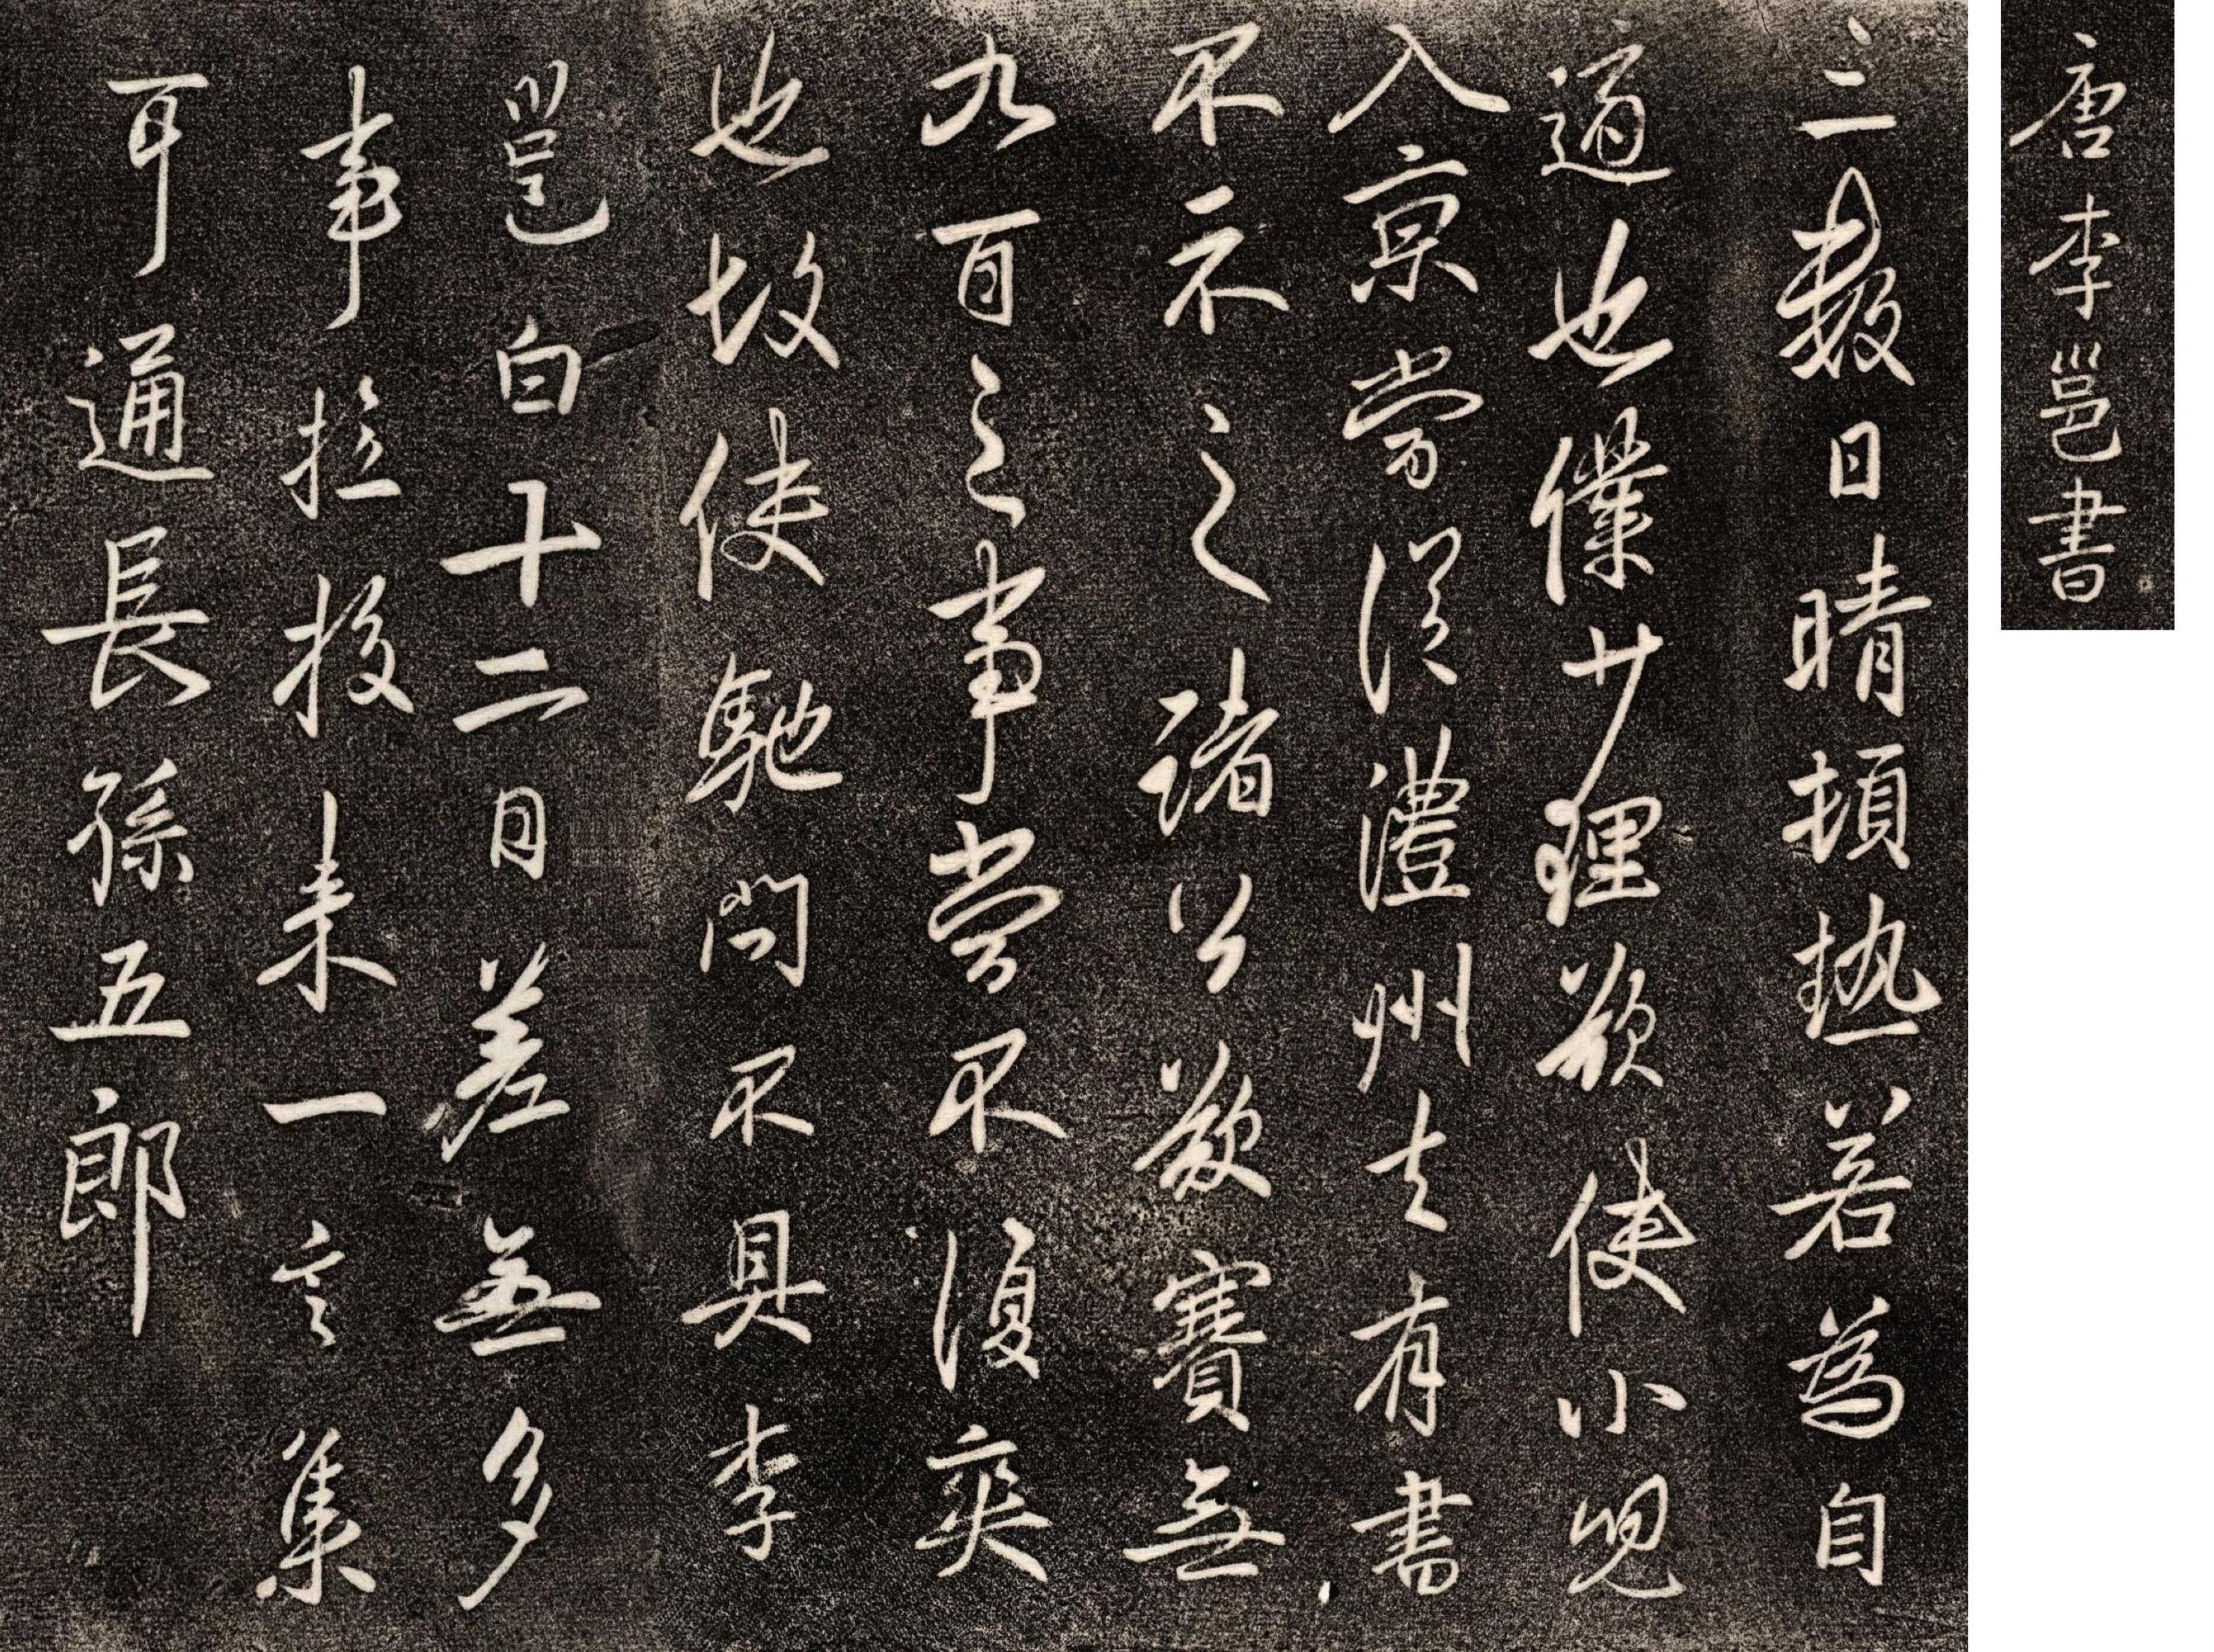 唐李邕書
三數日晴頓熱若為自
適也僕少理欲使小兒
入京嘗從澧州去有書
不示之諸公欲賽無
九百之事嘗不復爽
也故使馳問不具李
邕白十二日差無多
事拉投来一言集
耳通長孫五郎